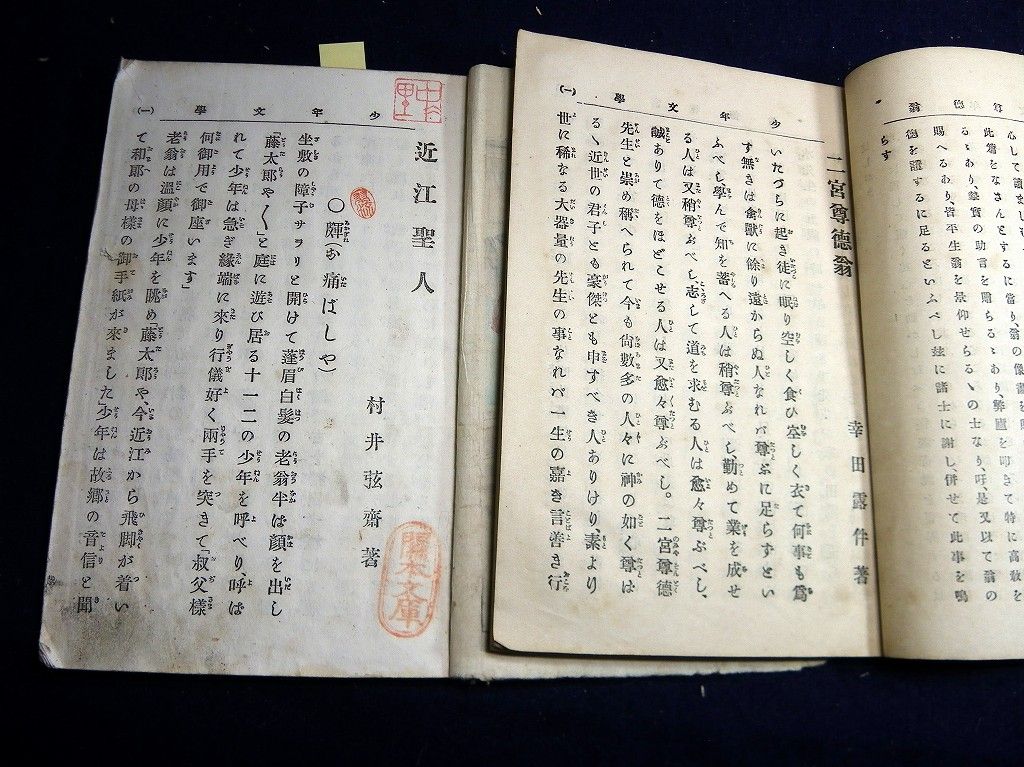 翁德尊
心して讀まし
此篇をなさんとするに當り、翁の
る〻あり、摯實の助言を賜らる〻あり、
賜へるあり、皆平生翁を景仰せらるゝの士なり、吁、是又以て翁の
德を證するに足るといふべし玆に諸士に謝し、併せて此事を鳴
らす
少年文學
(一)
二宮尊德翁
幸田露伴著
いたづらに起き徒に眠り空しく食ひ空しく衣て何事も爲
す無きは禽獸に餘り遠からぬ人なれバ尊ぶに足らずとい
ふべし學んで知を蓄へる人は稍尊ぶべし、勤めて業を成せ
る人は又稍尊ぶべし志して道を求むる人は愈々尊ぶべし、
誠ありて德をほどこせる人は又愈々尊ぶべし。二宮尊德
先生と崇め稱へられて今も尙數多の人々に神の如く尊は
るゝ近世の君子とも豪傑とも申すべき人ありけり、素より
世に稀なる大器量の先生の事なれバ一生の嘉き言善き行
少年文學
(一)
近江聖人
村井弦齋著
○皹(お痛ばしや)
坐敷の障子サラリと開けて蓬眉白髮の老翁半は顏を出し
「藤太郎や〱」と庭に遊び居る十一二の少年を呼べり、呼ば
れて少年は急ぎ緣端に來り行儀好く兩手を突きて「叔父樣
何御用で御座います」
老翁は溫顏に少年を眺め「藤太郎や、今近江から飛脚が着い
て和郎の母樣の御手紙が來ました」少年は故鄕の音信と聞
文庫